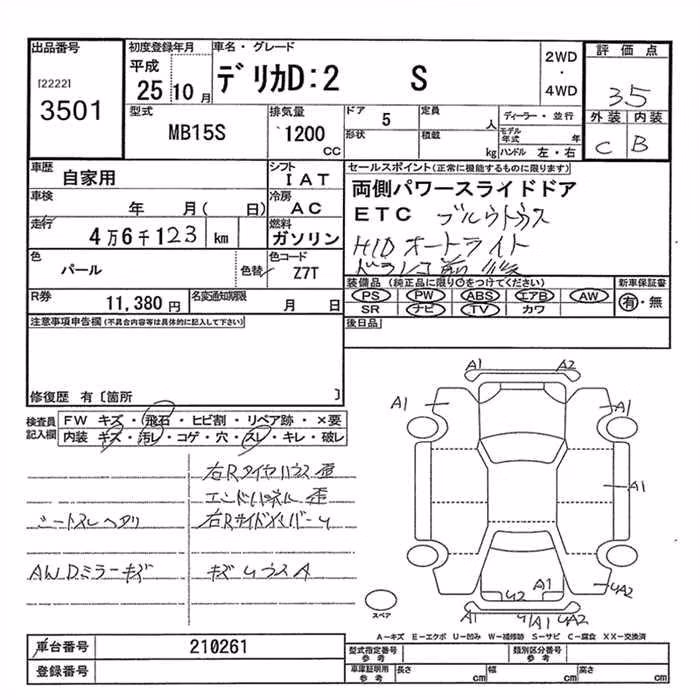 出品番号
[2222]
3501
初度登録年月
平成
25 10月
車名・グレード
デリカD:2 S
2WD
・
4WD
評価点
3.5
外装 内装
C B
型式
MB15S
排気量
1200
CC
ドア 5
形状
定員 人
積載 kg
ディーラー・並行
モデル年式 年
ハンドル 左・右
車歴 自家用
シフト IAT
車検 年 月( 日)
冷房 AC
走行 4万6千123 km
燃料 ガソリン
色 パール
色替
色コード Z7T
R券 11,380円
名変通知期限 月 日
セールスポイント(正常に機能するものに限ります)
両側パワースライドドア
ETC
HID オートライト
ドラレコ前
装備品 (純正品に限り○をつけてください)
PS PW ABS エアB AW
SR ナビ TV カワ
新車保証書
有・無
後日品
注意事項申告欄(不具合内容等は具体的に記入して下さい)
修復歴 有〔箇所 〕
検査員記入欄
FW キズ・飛石・ヒビ割・リペア跡・×要
内装 キズ・汚レ・コゲ・穴・スレ・キレ・破レ
右Rタイヤハウス歪
エンドパネル歪
シートスレヘタリ
右RサイドメンバーU
AW Dミラーキズ
キズUウスA
A1 A2
A1 A1
A1
U2 A1 UA2
A1 UA1 UA2
スペア
A―キズ E―エクボ U―凹み W―補修跡 S―サビ C―腐食 XX―交換済
車台番号 210261
登録番号
型式指定番号 参考
類別区分番号 参考
車庫証明用 参考
長さ cm
幅 cm
高さ cm